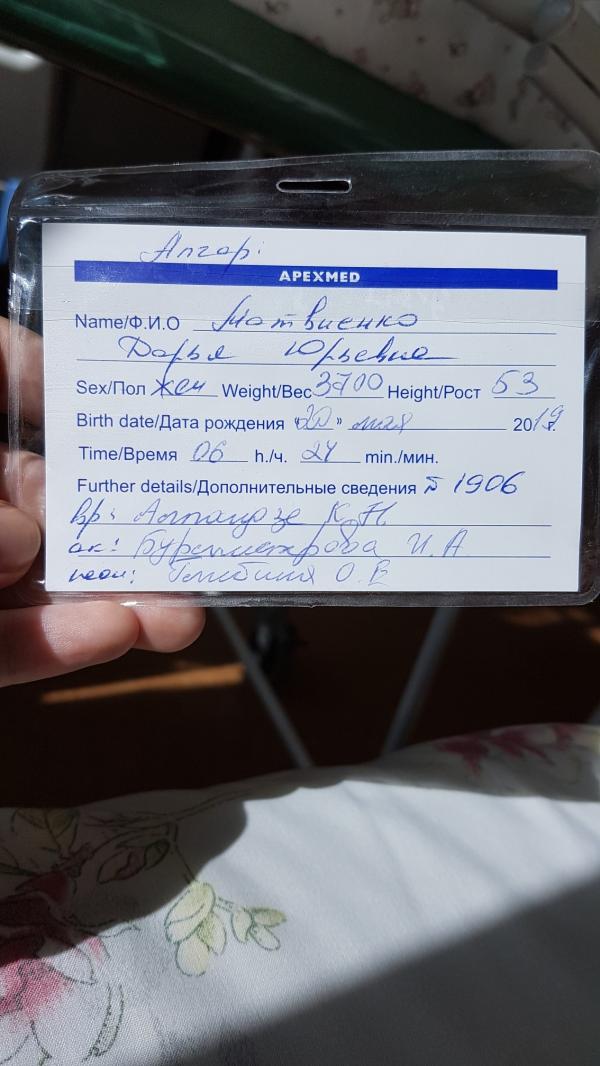 Апгар:
APEXMED
Name/Ф.И.О Матвиенко
Дарья Юрьевна
Sex/Пол жен Weight/Вес 3700 Height/Рост 53
Birth date/Дата рождения "20" мая 2019г.
Time/Время 06 h./ч. 24 min./мин.
Further details/Дополнительные сведения № 1906
вр:
ак: И. А.
О. В